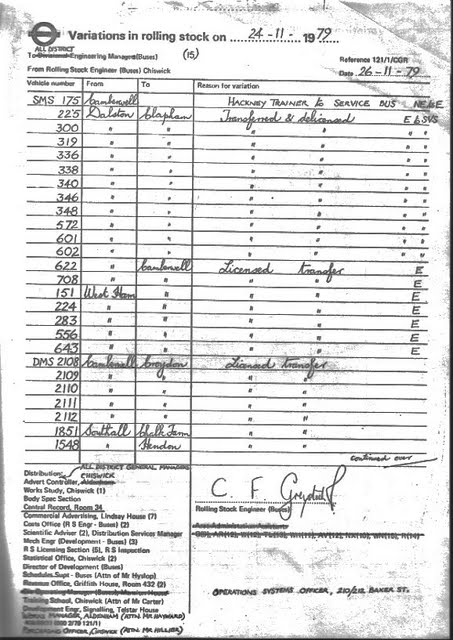 Variations in rolling stock on 24-11-1979
ALL DISTRICT
To Divisional Engineering Managers (Buses) (15)
Reference 121/1/CGR
From Rolling Stock Engineer (Buses) Chiswick
Date 26-11-79
Vehicle number From To Reason for variation
SMS 175 Camberwell HACKNEY TRAINER to SERVICE BUS
225 Dalston Clapham Transferred & delicensed E to SVS
300 " " " " " "
319 " " " " " "
336 " " " " " "
338 " " " " " "
340 " " " " " "
346 " " " " " "
348 " " " " " "
572 " " " " " "
601 " " " " " "
602 " " " " " "
622 " Camberwell Licensed transfer E
708 " " " " E
151 West Ham " " " E
224 " " " " E
283 " " " " E
556 " " " " E
643 " " " " E
DMS 2108 Camberwell Croydon Licensed transfer
2109 " " " "
2110 " " " "
2111 " " " "
2112 " " " "
1851 Southall Chalk Farm " "
1548 " Hendon " "
continued over
Distribution: ALL DISTRICT GENERAL MANAGERS
CHISWICK
Advert Controller, Aldenham
Works Study, Chiswick (1)
Body Spec Section
Central Record, Room 34
Commercial Advertising, Lindsay House (7)
Costs Office (R S Engr - Buses) (2)
Scientific Adviser (2), Distribution Services Manager
Mech Engr (Development - Buses) (3)
R S Licensing Section (5), R S Inspection
Statistical Office, Chiswick (2)
Director of Development (Buses)
Schedules Supt - Buses (Attn of Mr Hyslop)
Revenue Office, Griffith House, Room 432 (2)
Training School, Chiswick (Attn of Mr Carter)
Development Engr, Signalling, Telstar House
WORKS MANAGER, ALDENHAM (ATTN. MR HAYWARD)
PURCHASING OFFICER, CHISWICK (ATTN. MR HILLIER)
C. F.
Rolling Stock Engineer (Buses)
OPERATIONS SYSTEMS OFFICER, 210/212 BAKER ST.